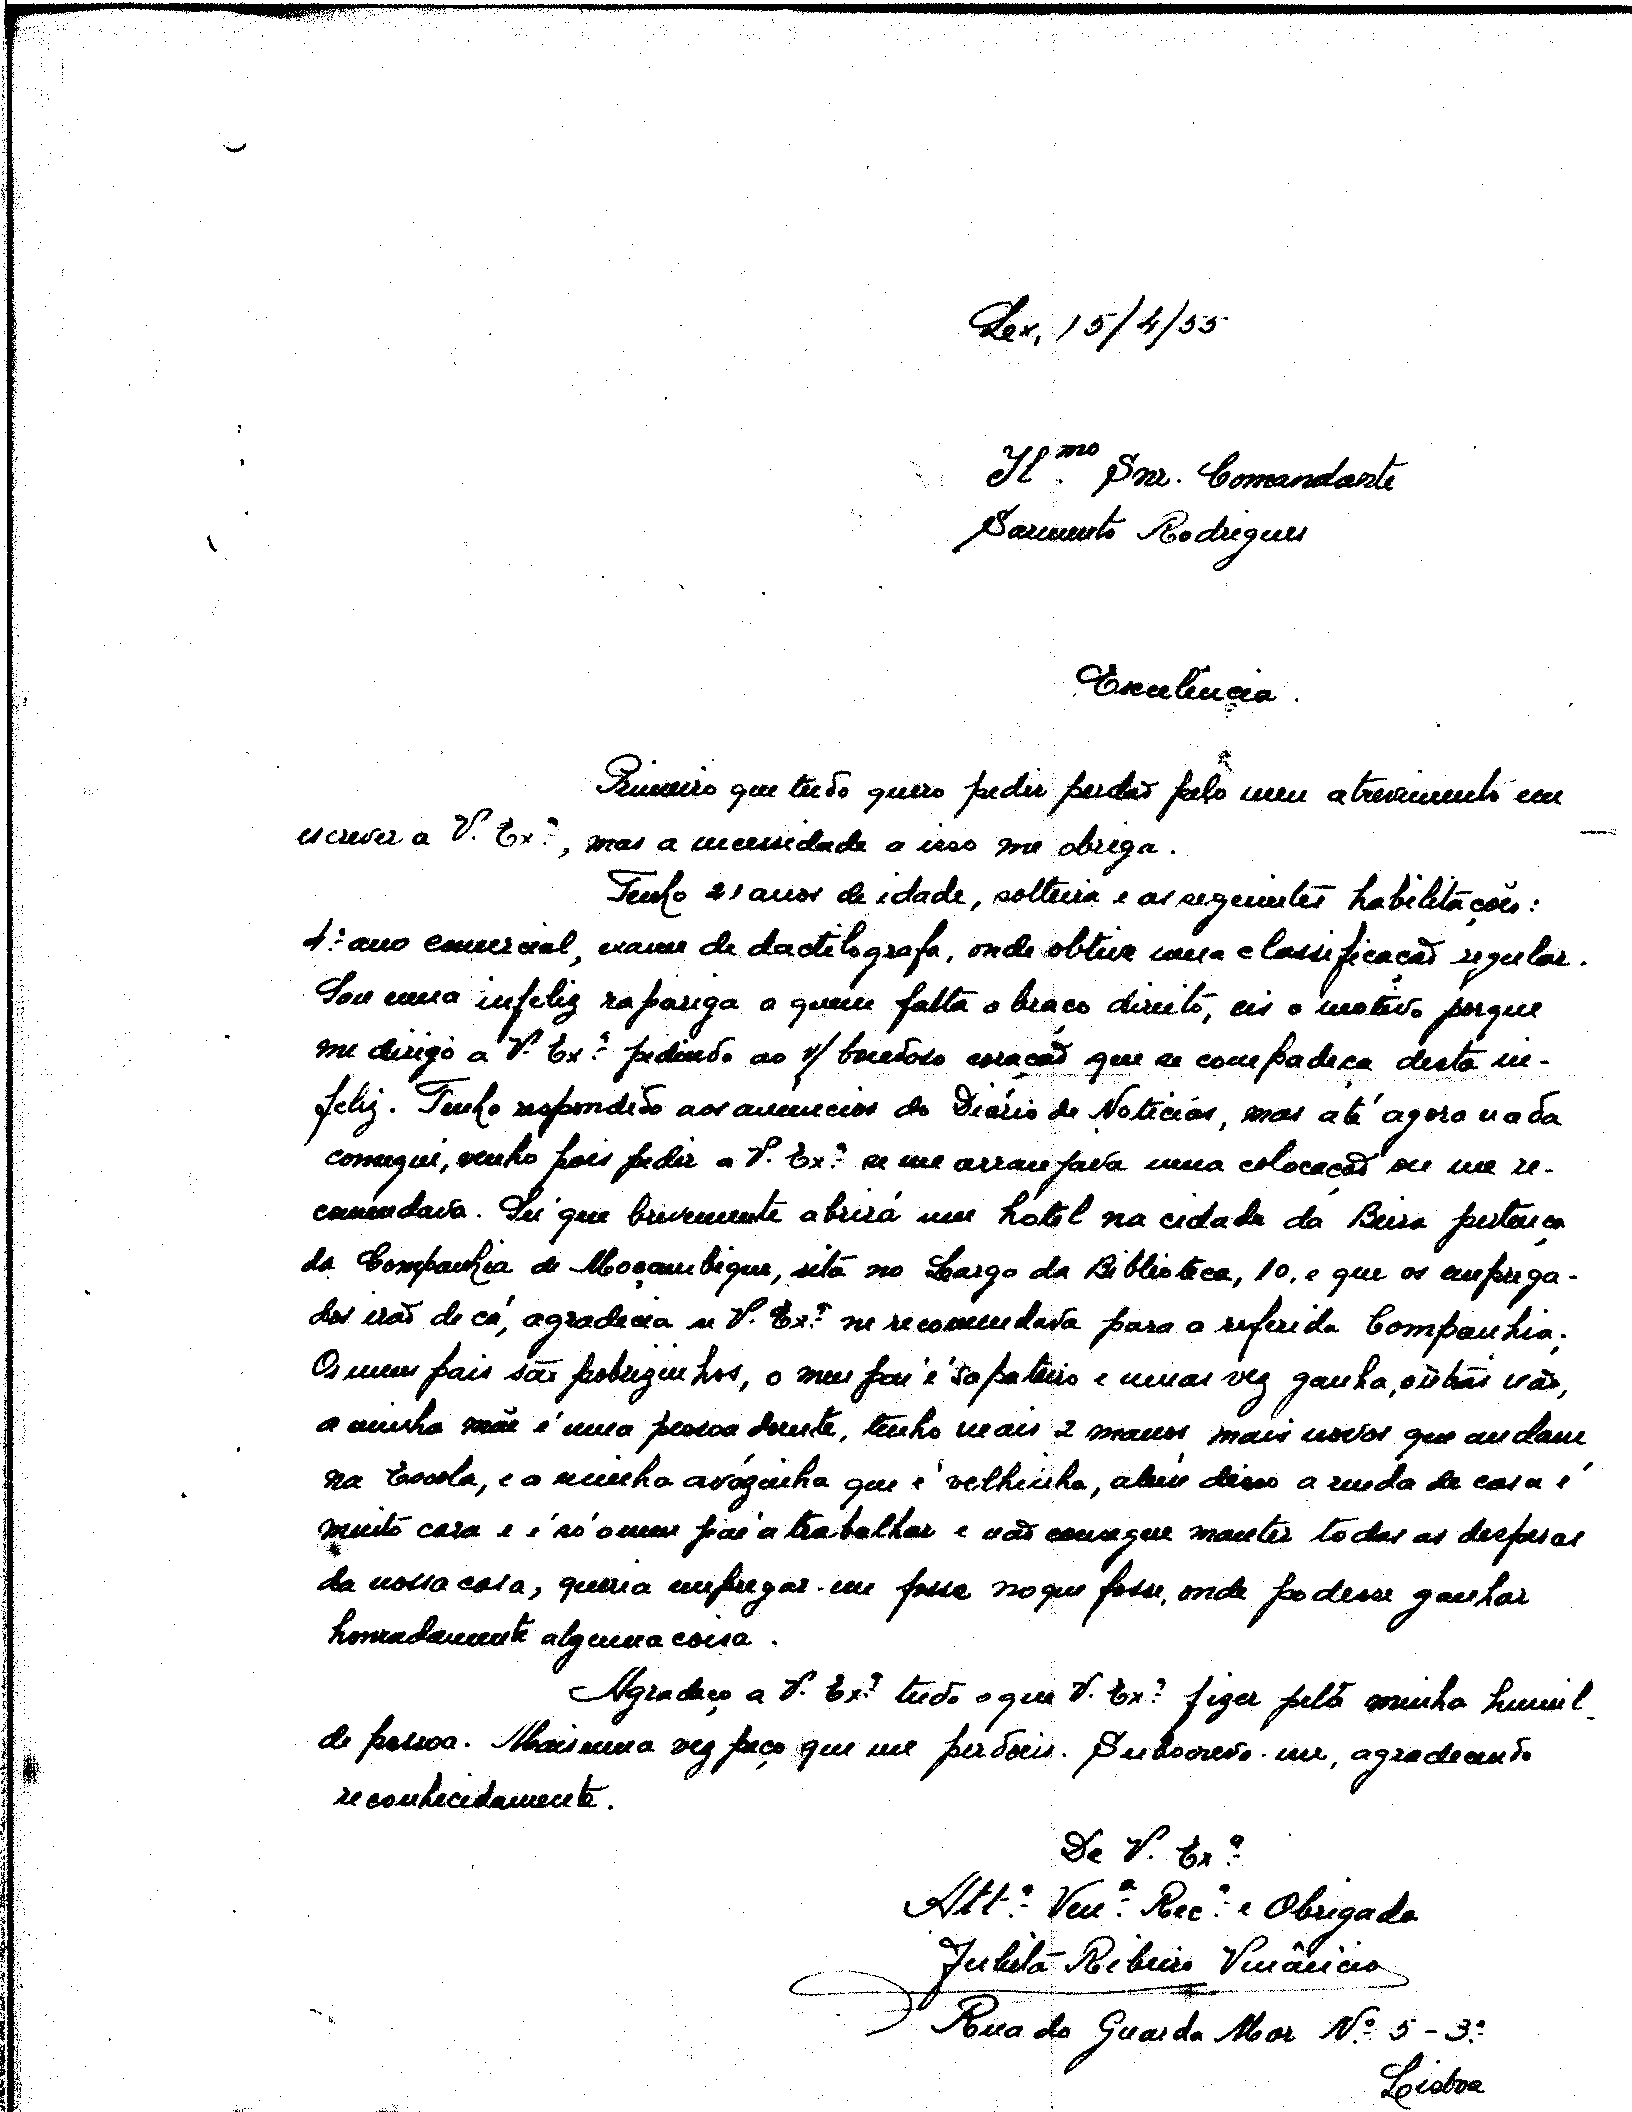 Lex, 15/4/55
Il.mo Snr. Comandante
Sarmento Rodrigues
Excelência.
Primeiro que tudo quero pedir perdão pelo meu atrevimento em
escrever a V. Ex.ª, mas a necessidade a isso me obriga.
Tenho 21 anos de idade, solteira e as seguintes habilitações:
4.º ano comercial, exame de dactilografa, onde obtive uma classificação regular.
Sou uma infeliz rapariga a quem falta o braço direito, eis o motivo porque
me dirigo a V. Ex.ª pedindo ao v/ bondoso coração que se compadeça desta in-
feliz. Tenho respondido aos anúncios do Diário de Notícias, mas até agora nada
consegui, venho pois pedir a V. Ex.ª se me arranjava uma colocação ou me re-
comendava. Sei que brevemente abrirá um hotel na cidade da Beira pertença
da Companhia de Moçambique, sita no Largo da Biblioteca, 10, e que os emprega-
dos irão de cá, agradecia se V. Ex.ª me recomendava para a referida Companhia.
Os meus pais são pobrezinhos, o meu pai é sapateiro e umas vez ganha, outras não,
a minha mãe é uma pessoa doente, tenho mais 2 manos mais novos que andam
na Escola, e a minha avózinha que é velhinha, além disso a renda de casa é
muito cara e é só o meu pai a trabalhar e não consegue manter todas as despesas
da nossa casa, queria empregar-me fosse no que fosse, onde podesse ganhar
honradamente alguma coisa.
Agradeço a V. Ex.ª tudo o que V. Ex.ª fizer pela minha humil-
de pessoa. Mais uma vez peço que me perdoeis. Subscrevo-me, agradecendo
reconhecidamente.
De V. Ex.ª
Att.ª Ven.ª Rec.ª e Obrigada
Julieta Ribeiro Venâncio
Rua do Guarda Mor N.º 5-3.º
Lisboa